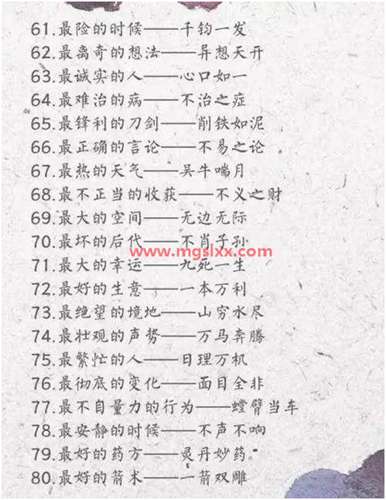 61.最险的时候——千钧一发
62.最离奇的想法——异想天开
63.最诚实的人——心口如一
64.最难治的病——不治之症
65.最锋利的刀剑——削铁如泥
66.最正确的言论——不易之论
67.最热的天气——吴牛喘月
68.最不正当的收获——不义之财
69.最大的空间——无边无际
70.最坏的后代——不肖子孙
www.mgslxx.com
71.最大的幸运——九死一生
72.最好的生意——一本万利
73.最绝望的境地——山穷水尽
74.最壮观的声势——万马奔腾
75.最繁忙的人——日理万机
76.最彻底的变化——面目全非
77.最不自量力的行为——螳臂当车
78.最安静的时候——不声不响
79.最好的药方——灵丹妙药
80.最好的箭术——一箭双雕